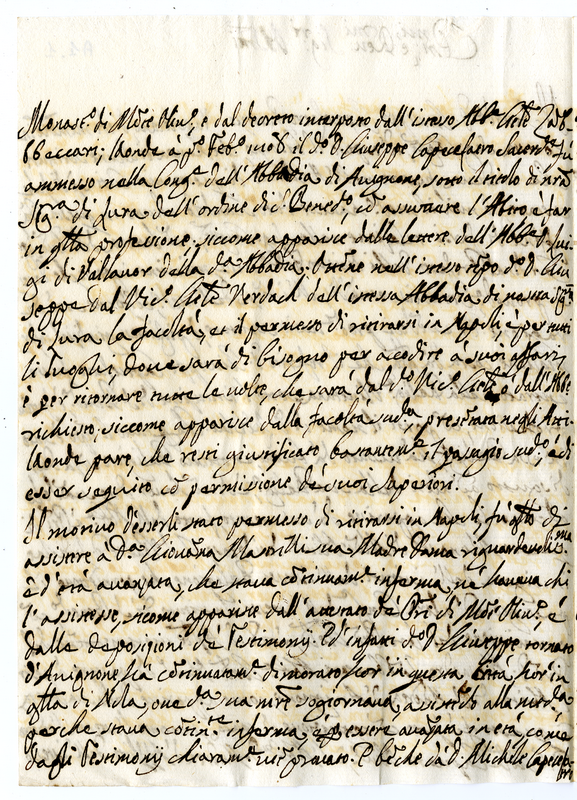 Monast.º di Mõte Oliv.º, e dal decreto interposto dall'istesso Abb.e Gñle
Beccari; laonde à p.º Feb.º 1708 il d.º D. Giuseppe Capecelatro Sacerd.e fù
ammesso nella Cong.ne dell'Abbadia di Avignone, sotto il titolo di nrã
Sig.ra di Jura dell'ordine di S. Bened.º, cõ assumere l'Abito, è far
in qlla professione, siccome apparisce dalla lettera dell'Abb.e D. Lui-
gi di Vallavor della d.a Abbadia. Ottẽne nell'istesso tẽpo d.º D. Giu
seppe dal Vic.º Gñle Verdach dell'istessa Abbadia di nostra Sig.ra
di Jura la facoltà, et il permesso di ritirarsi in Napoli, è per tutti
li luoghi, dove sarà di bisogno per accodire à suoi affari,
è per ritornare tutte le volte, che sarà dal d.º Vic.º Gñle, ò dall'Abbe
richiesto, siccome apparisce dalla facoltà sud.a, presẽtata negli Atti.
laonde pare, che resti giustificato bastantem.e il passagio sud.º, è di
esser seguito cõ permissione de suoi Superiori.
Il motivo d'esserli stato permesso di ritirarsi in Napoli, fù qllo di
assistere à D.a Giovãna Mastrilli sua Madre Dama riguardevoliss.ma
è d'età avanzata, che stava cõtinuam.e inferma, nè haveva chi
l'assistesse, sicome apparisce dall'attestato de PP.ri di Mõte Oliv.º, è
dalle deposizioni de Testimonij. Ed infatti d.º D. Giuseppe tornato
d'Avignone hà cõtinuatam.e dimorato, sior in questa Città, sior in
qlla di Nola, ove d.a sua mrẽ sogiornava, assistẽdo alla med.a
perche stava cõtin.e inferma, è per essere avãzata in età, come
dagli Testimonij chiaram.e viẽ provato. E bẽche da D. Michele Capecela
tro